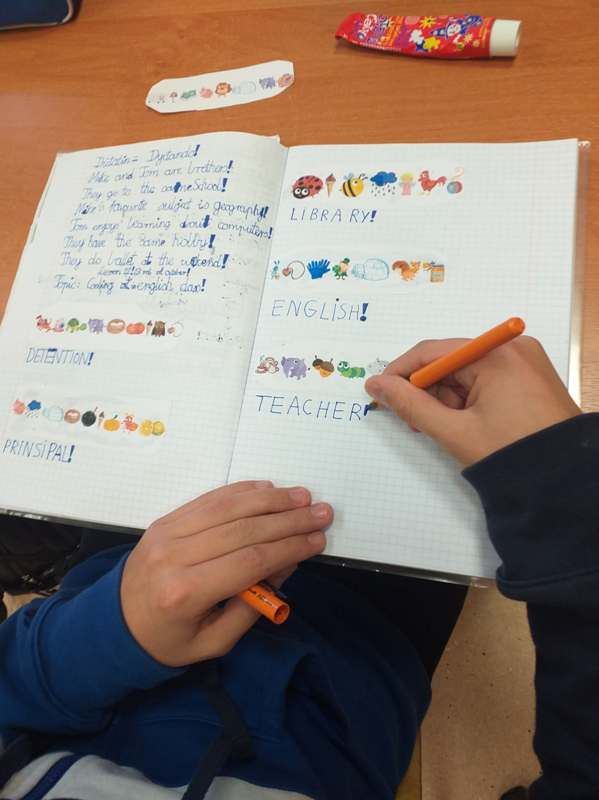 Dictation = Dyktando!
Mike and Tom are brothers!
They go to the same School!
Mike's favourite subject is geography!
Tom enjoys learning about computers!
They have the same hobby!
They do ballet at the weekend!
Topic: Coding at english class!
DETENTION!
PRINSIPAL!
LIBRARY!
ENGLISH!
TEACHER!